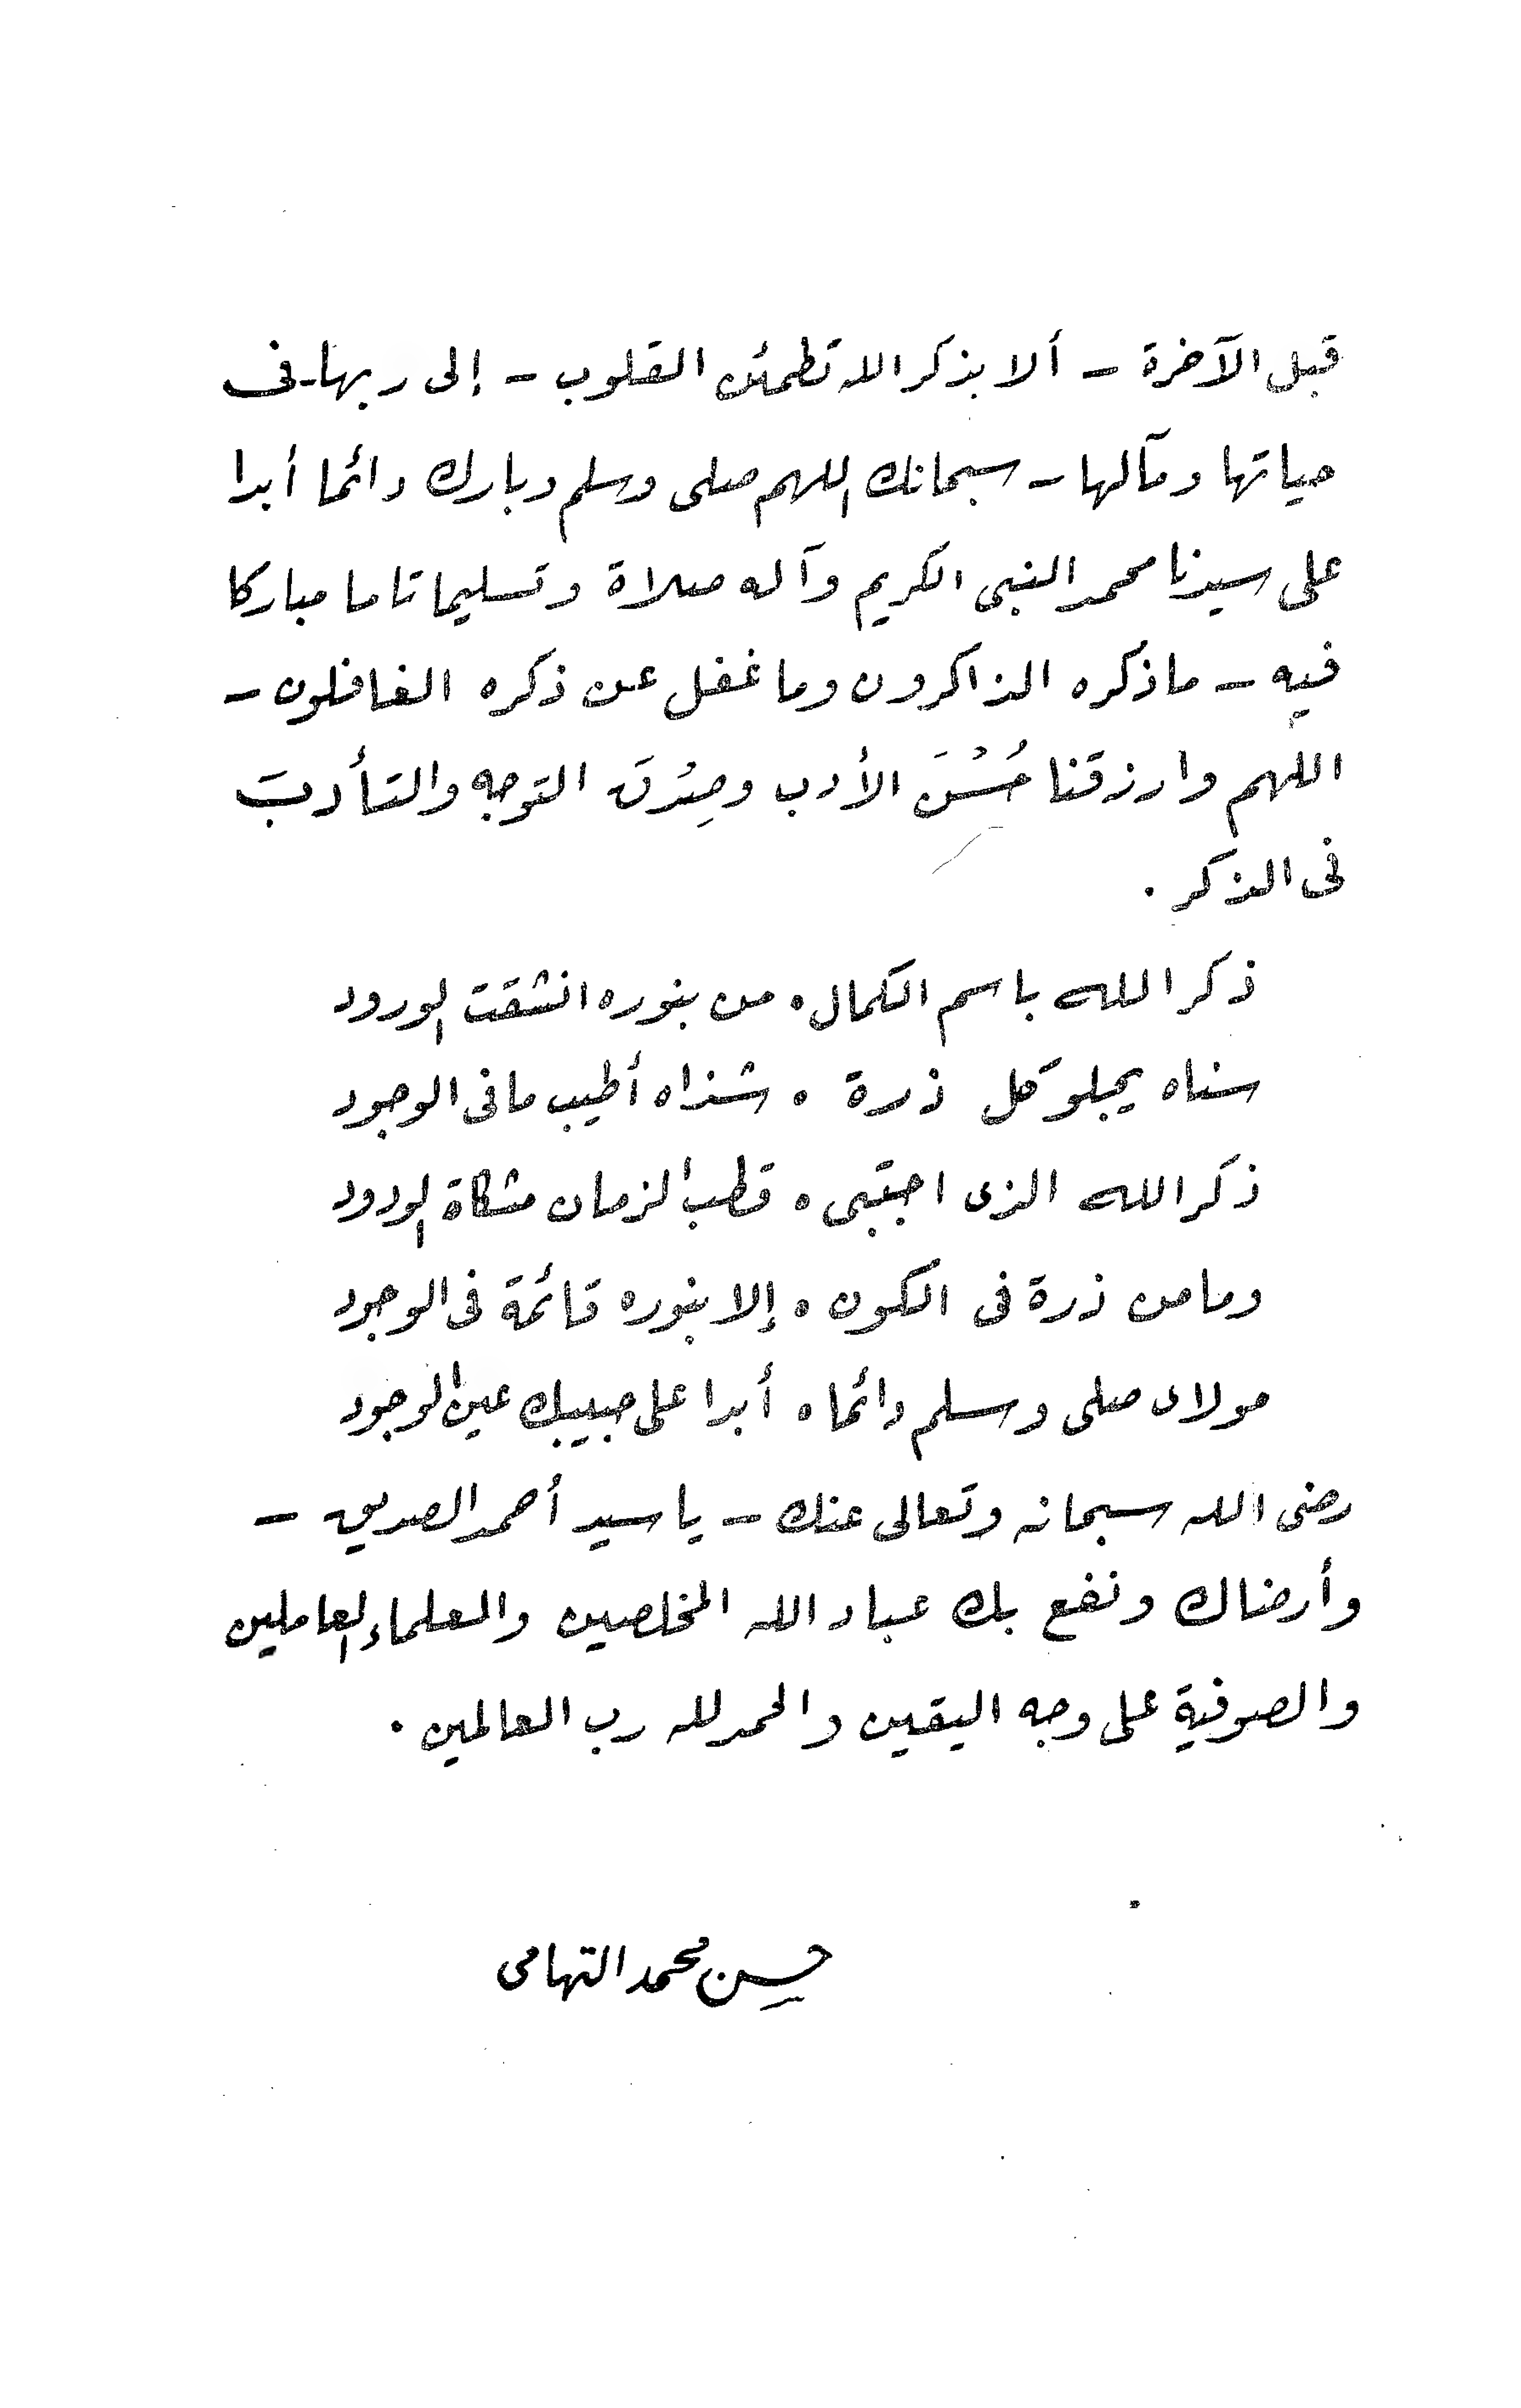 قبل الآخرة - ألا بذكر الله تطمئن القلوب - إلى ربها - فى
حياتها ومآلها - سبحانك اللهم صلى وسلم وبارك دائما أبدا
على سيدنا محمد النبى الكريم وآله صلاة وتسليما تاما مباركا
فيه - ما ذكره الذاكرون وما غفل عن ذكره الغافلون -
اللهم وارزقنا حُسْنَ الأدب وصِدْقَ التوجه والتأدبَ
فى الذكر .
ذكر الله باسم الكمال • من بنوره انشقت الورود
سناه يجلو كل ذرة • شذاه أطيب ما فى الوجود
ذكر الله الذى اجتبى • قطب الزمان مشكاة الودود
وما من ذرة فى الكون • إلا بنوره قائمة فى الوجود
مولاى صلى وسلم دائما • أبدا على حبيبك عين الوجود
رضى الله سبحانه وتعالى عنك - يا سيد أحمد الصديق -
وأرضاك ونفع بك عباد الله المخلصين والعلماء العاملين
والصوفية على وجه اليقين والحمد لله رب العالمين .
حسين محمد التهامى